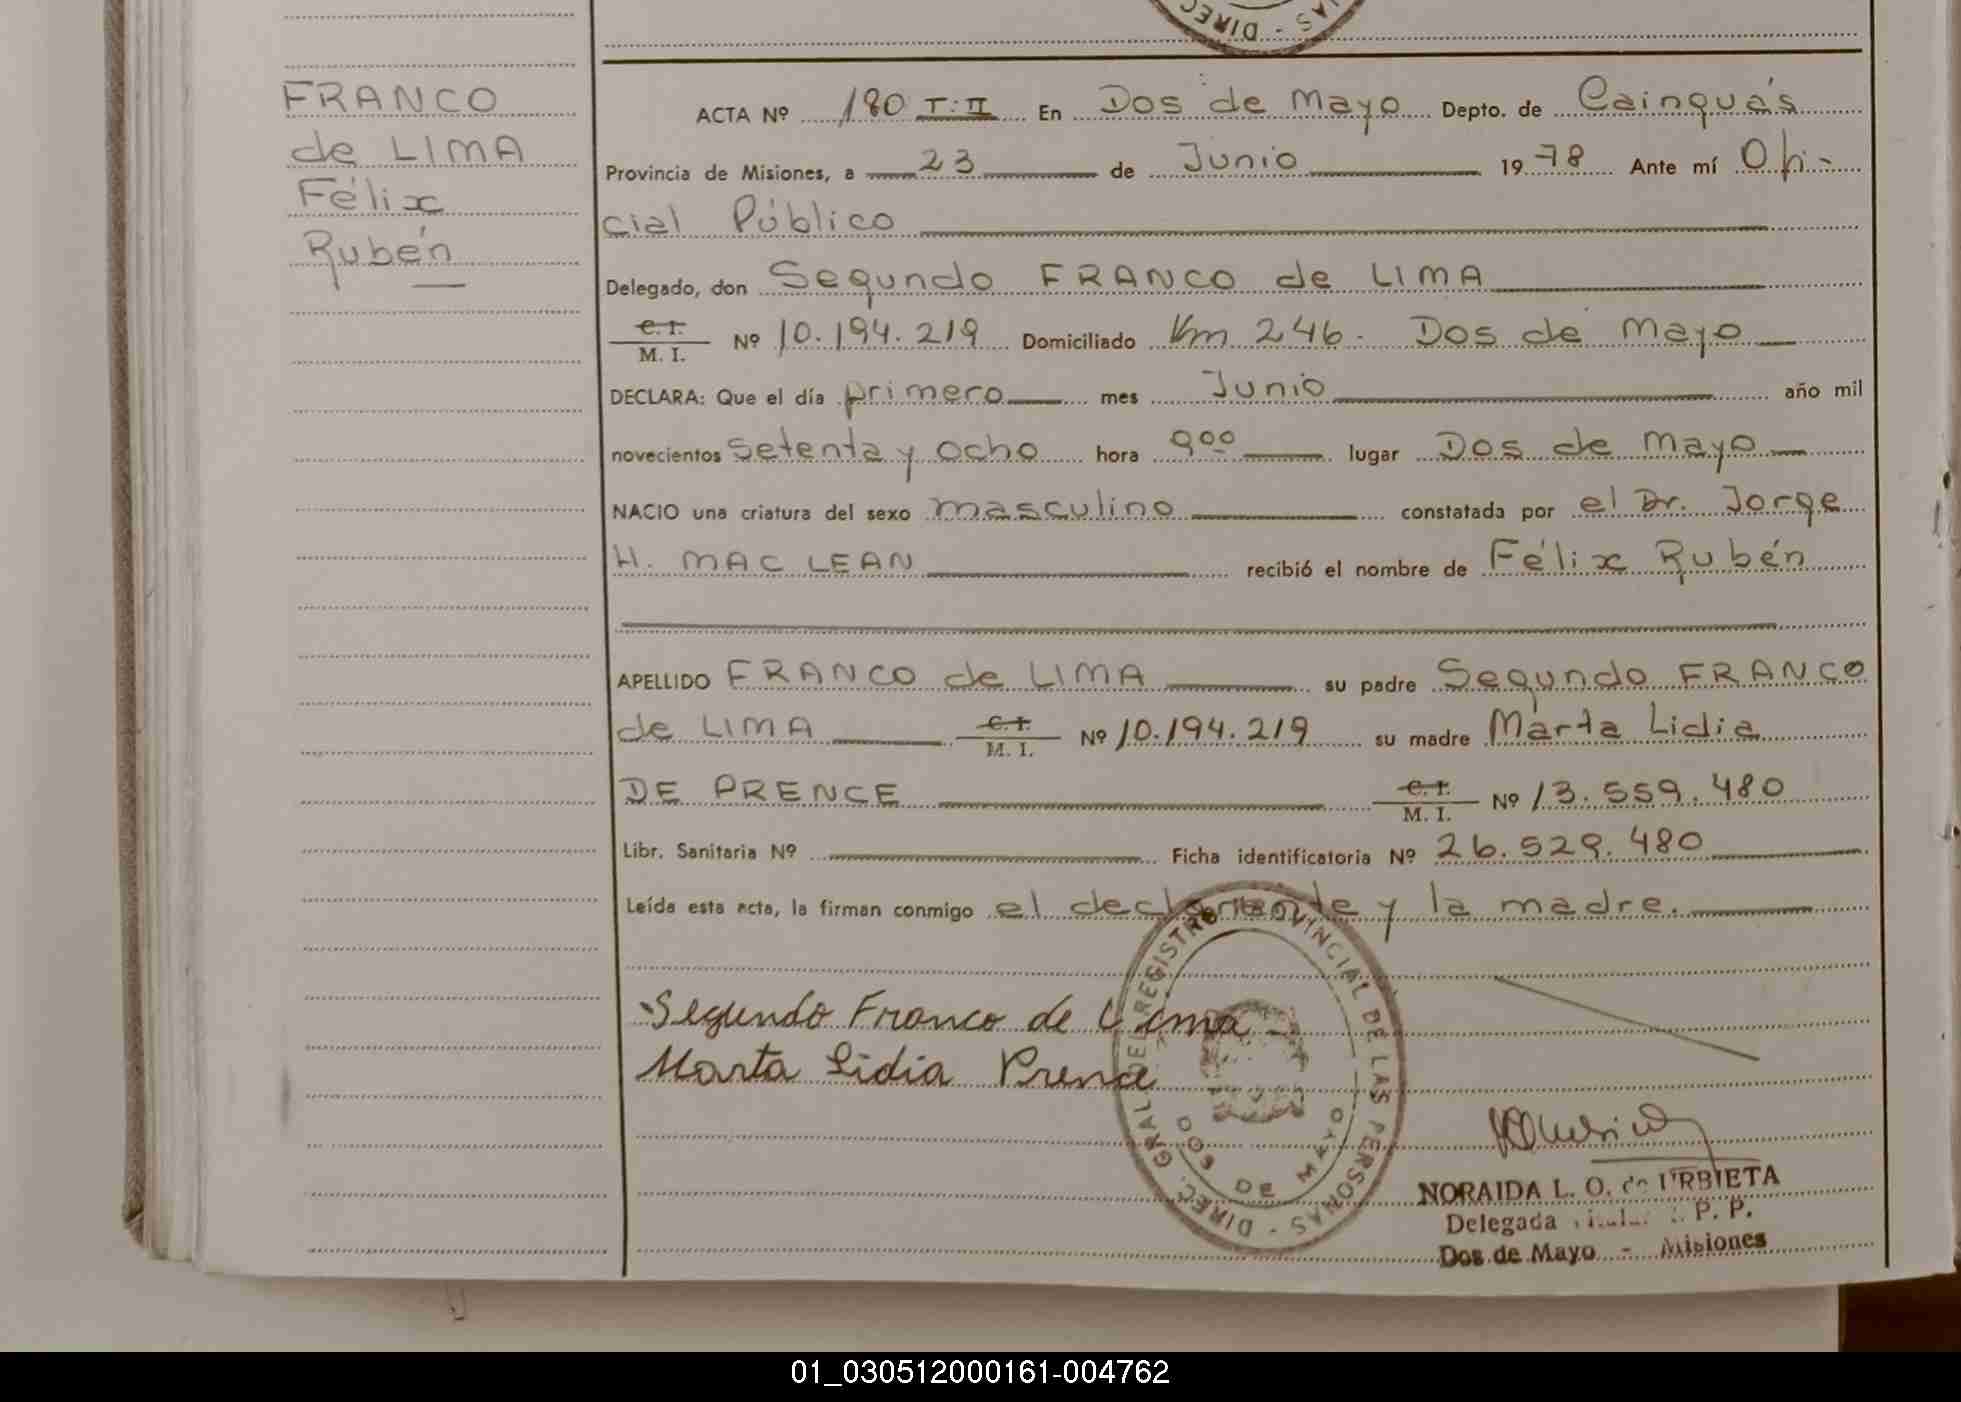 DIREC
NAS - DIREC
FRANCO
de LIMA
Félix
Rubén
ACTA Nº 180 T: II En Dos de Mayo Depto. de Cainguás
Provincia de Misiones, a 23 de Junio 1978 Ante mí Ofi-
cial Público
Delegado, don Segundo FRANCO de LIMA
C.I.
M. I. Nº 10.194.219 Domiciliado Km 246. Dos de Mayo
DECLARA: Que el día primero mes Junio año mil
novecientos setenta y ocho hora 9 00 lugar Dos de Mayo
NACIO una criatura del sexo masculino constatada por el Dr. Jorge
H. MAC LEAN recibió el nombre de Félix Rubén
APELLIDO FRANCO de LIMA su padre Segundo FRANCO
de LIMA C.I. M. I. Nº 10.194.219 su madre Marta Lidia
DE PRENCE C.I. M. I. Nº 13.559.480
Libr. Sanitaria Nº Ficha identificatoria Nº 26.529.480
Leída esta acta, la firman conmigo el declarante y la madre.
Segundo Franco de Lima
Marta Lidia Prence
DIREC. GRAL. DEL REGISTRO PROVINCIAL DE LAS PERSONAS -
DOS DE MAYO
NORAIDA L. O. de URBIETA
Delegada P. P.
Dos de Mayo - Misiones
01_030512000161-004762